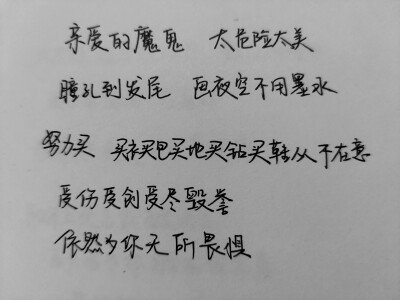 亲爱的魔鬼 太危险太美
瞳孔到发尾 画夜空不用墨水
努力买 买衣买包买地买钻买鞋从不在意
受伤受创受尽毁誉
依然为你无所畏惧